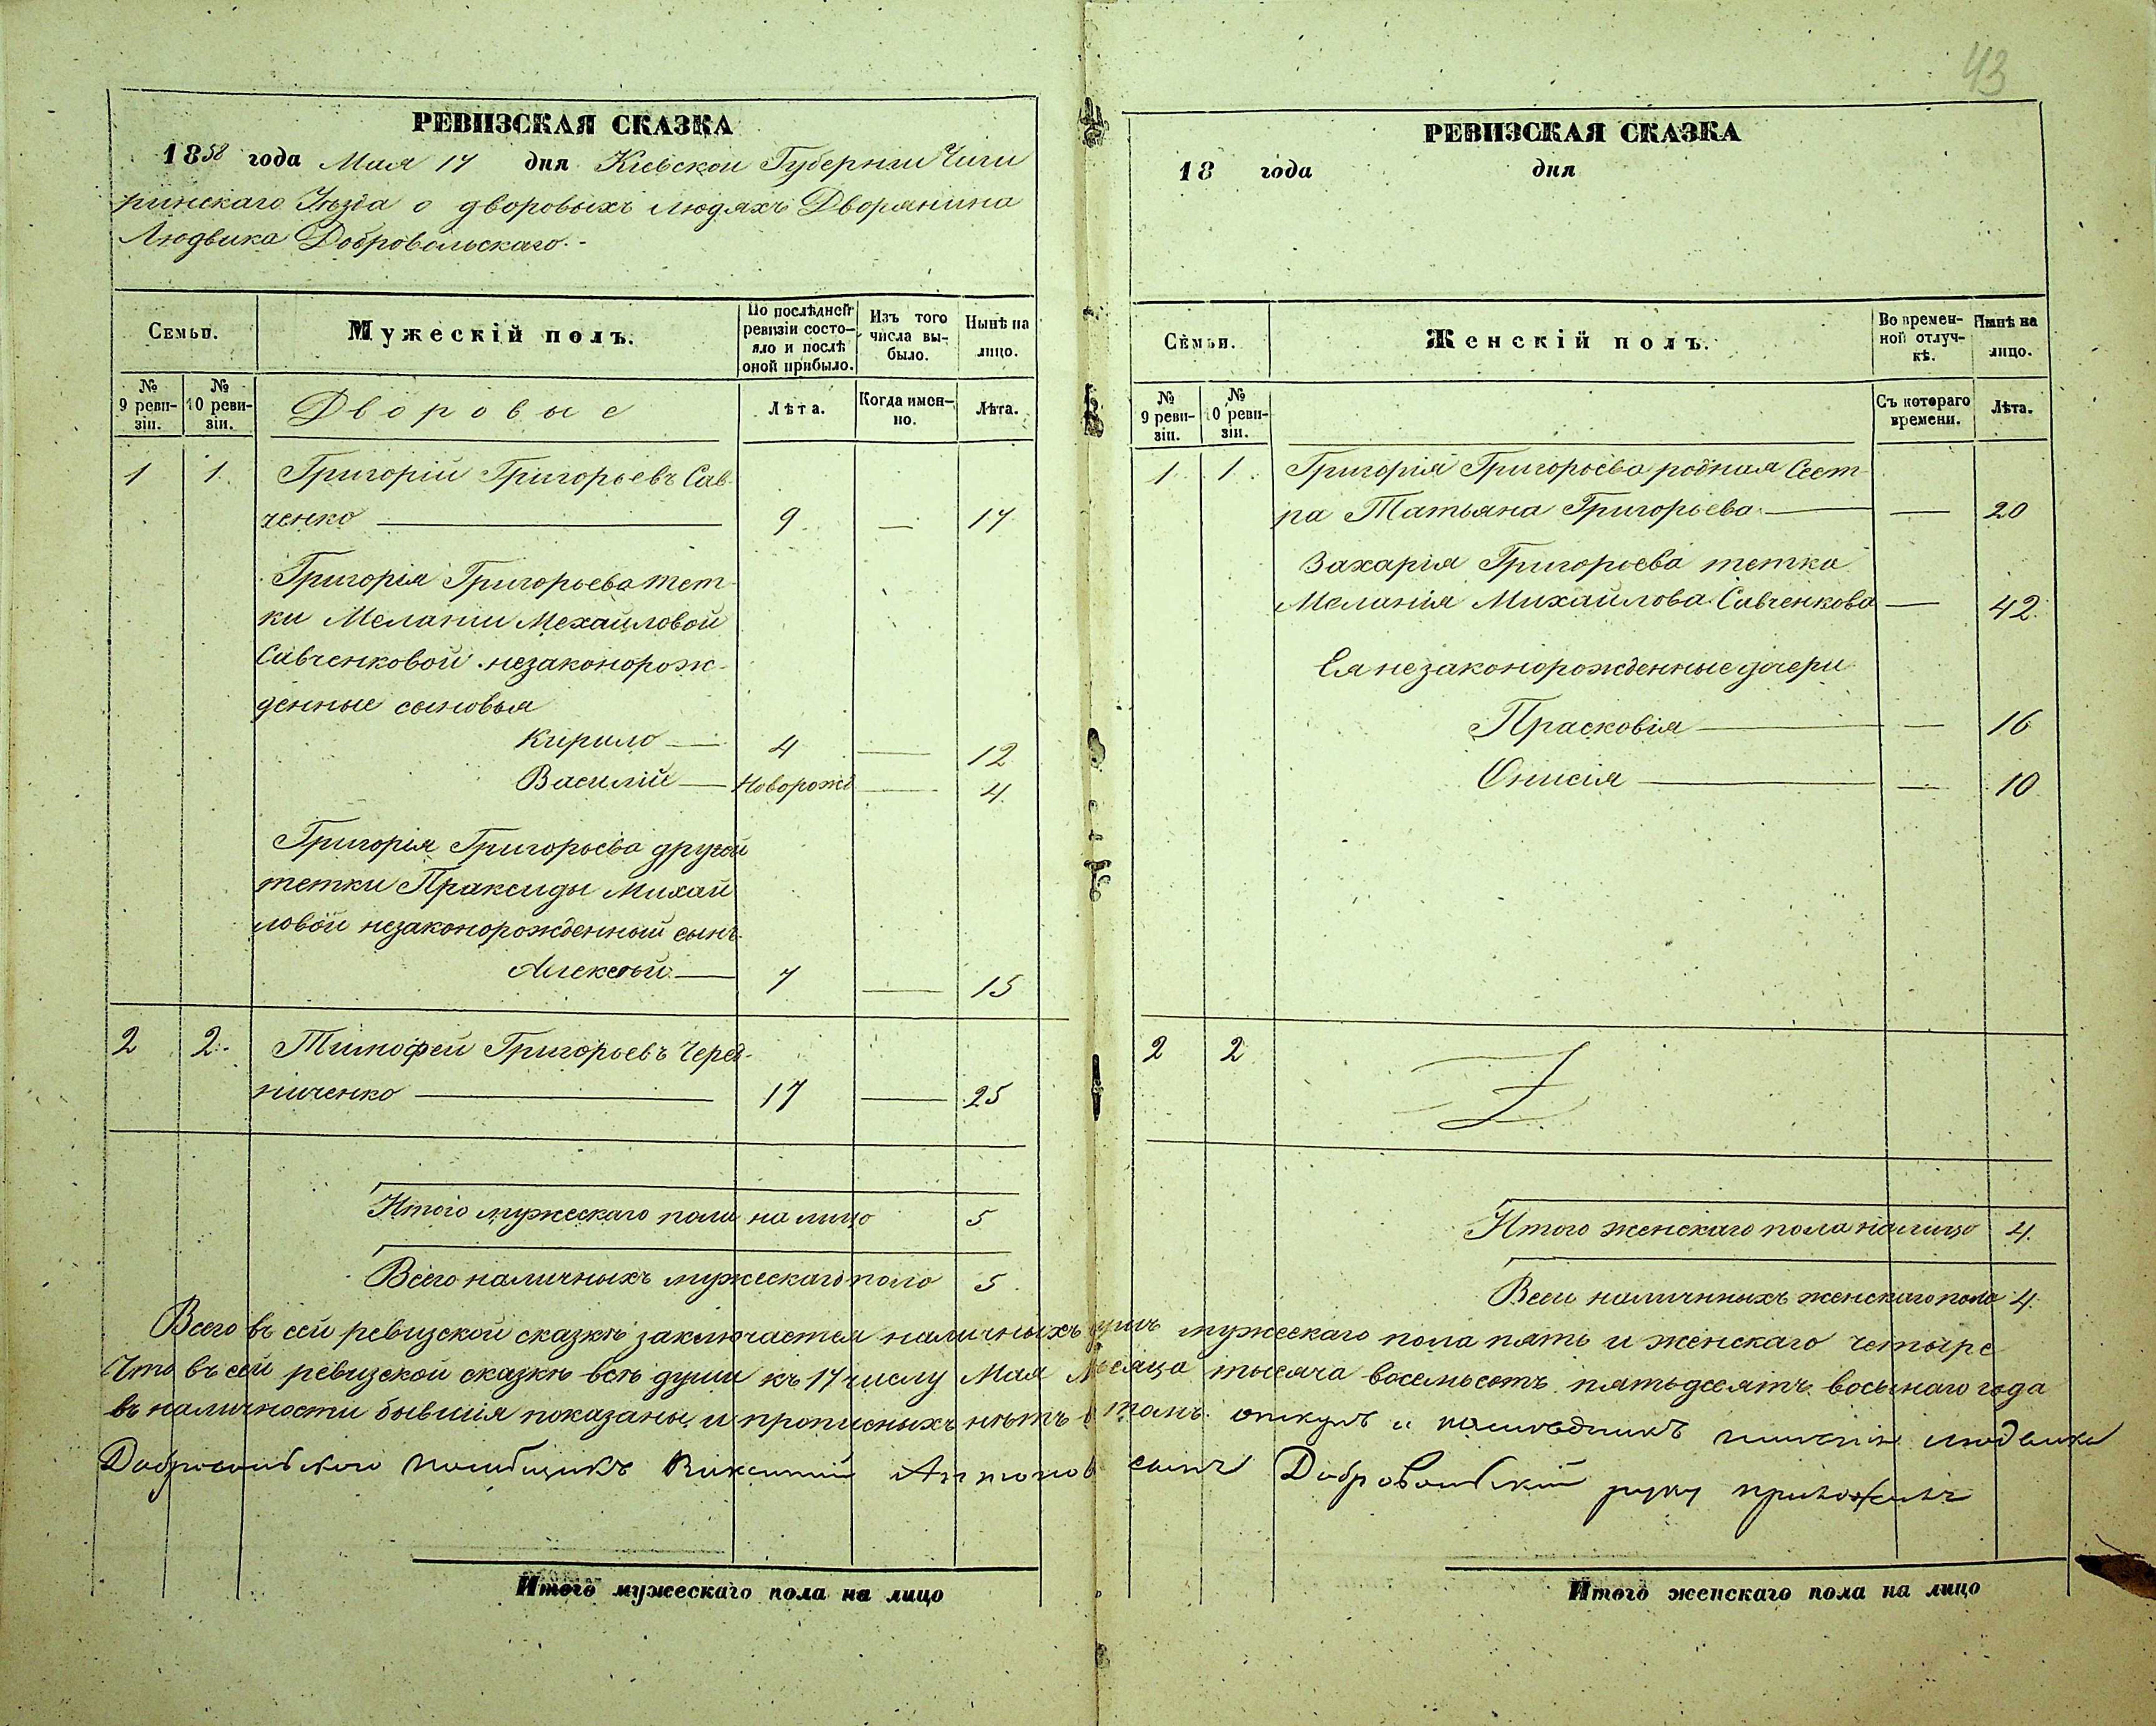 43
РЕВИЗСКАЯ СКАЗКА
1858 года Мая 17 дня Кіевской Губерніи Чиги
ринскаго Уѣзда о дворовыхъ людяхъ Дворянина
Людвика Добровольскаго.-
Семьи.
Мужескій полъ.
По послѣдней ревизіи состояло и послѣ оной прибыло.
Изъ того числа выбыло.
Нынѣ на лицо.
№ 9 ревизіи.
№ 10 ревизіи.
Дворовые
Лѣта.
Когда именно.
Лѣта.
1 1. Григорій Григорьевъ Сав-
ченко 9. — 17
Григорія Григорьева тет-
ки Меланіи Механловой
Савченковой незаконорож-
денные сыновья
Кирило — 4 — 12
Василій — Новорожд — 4.
Григорія Григорьева другой
тетки Праксиды Михай
ловой незаконорожденный сынъ
Алексѣй — 7 — 15
2 2. Тимофей Григорьевъ Черед-
ниченко 17 — 25
Итого мужескаго пола на лицо 5
Всего наличныхъ мужескаго поло 5
РЕВИЗСКАЯ СКАЗКА
18 года дня
Семьи.
Женскій полъ.
Во временной отлучкѣ.
Нынѣ на лицо.
№ 9 ревизіи.
№ 10 ревизіи.
Съ котораго времени.
Лѣта.
1. 1. Григорія Григорьева родная Сест
ра Татьяна Григорьева — — 20
Захарія Григорьева тетка
Меланія Михайлова Савченкова — 42.
Ея незаконорожденные дочери
Прасковія — — 16
Онисія — — 10
2 2
Итого женскаго пола налицо 4.
Всего наличныхъ женскаго пола 4.
Всего въ сей ревизской сказкѣ заключается наличныхъ душъ мужескаго пола пять и женскаго четыре
Что въ сей ревизской сказкѣ всѣ души къ 17 числу Мая Мѣсяца тысяча восемьсотъ пятьдесятъ восьмаго года
въ наличности бывшія показаны и прописныхъ нѣтъ въ томъ опекунъ и имѣнія людвика
Добровольскаго помѣщикъ Викентій Антонов сынъ Добровольскій руку приложилъ
Итого мужескаго пола на лицо
Итого женскаго пола на лицо